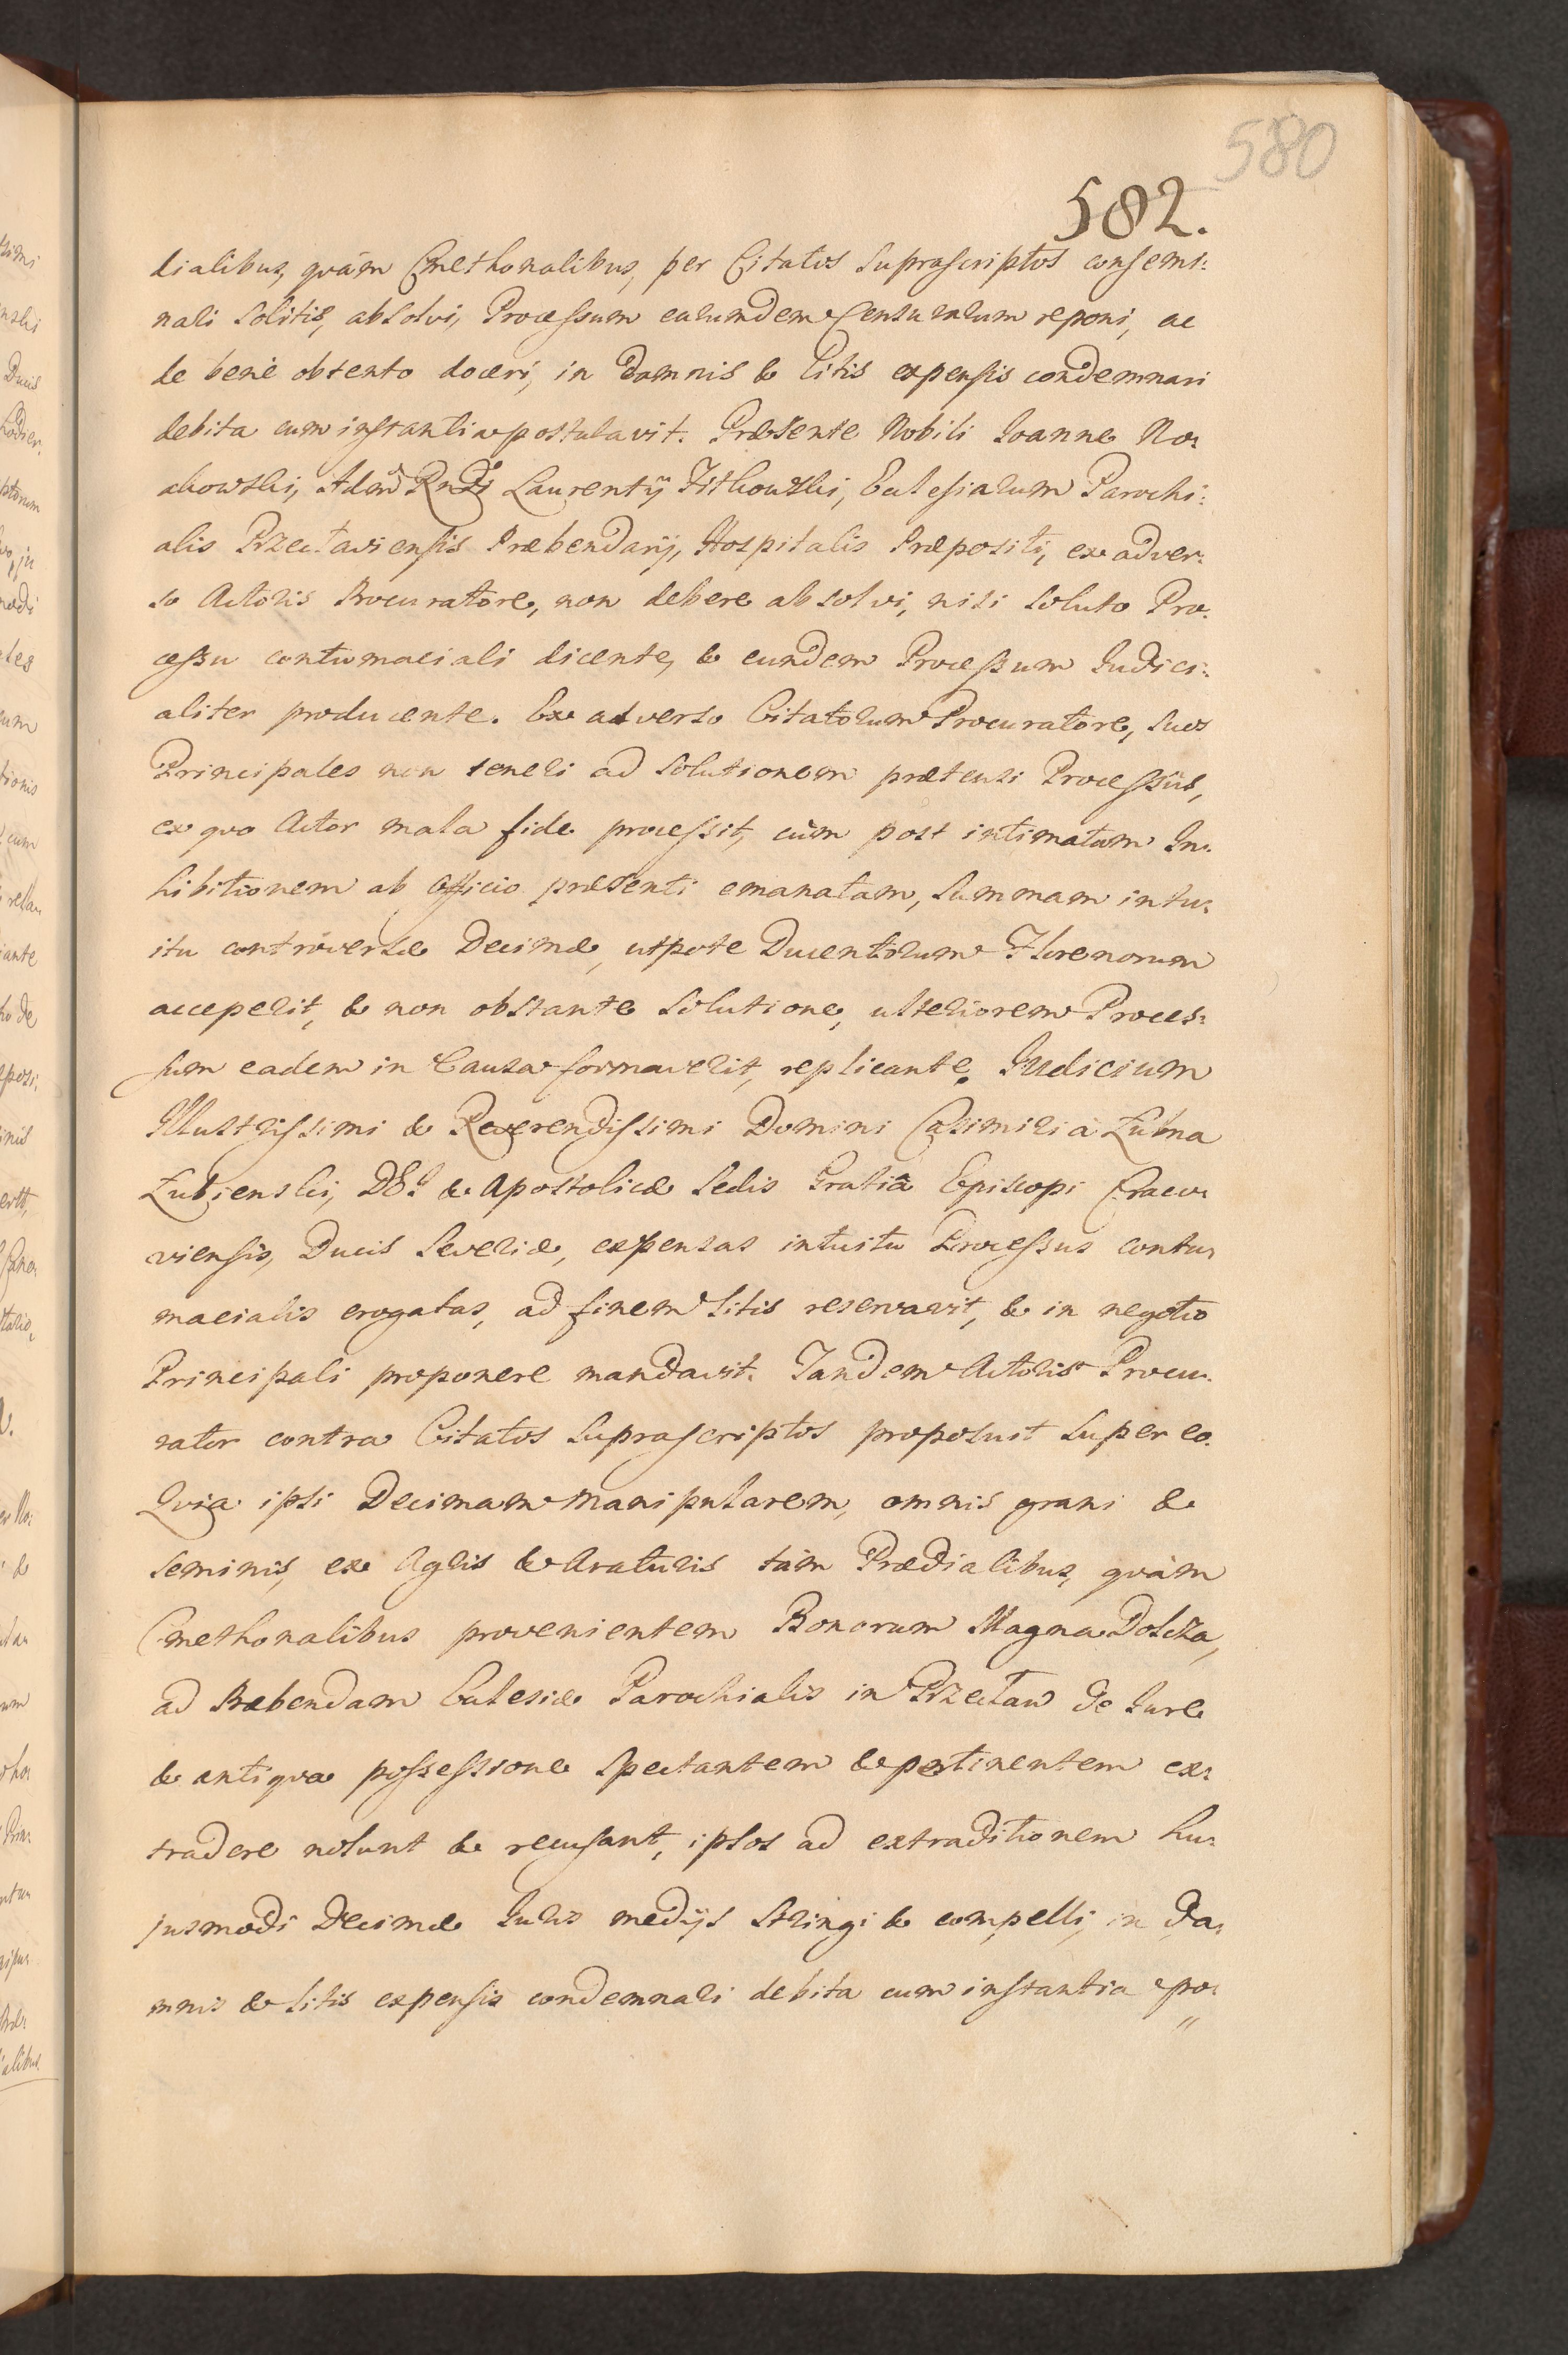 580
582.
dialibus, quàm Cmethonalibus, per Citatos Suprascriptos consemi:
nali Solitis, absolvi, Processum earumdem Censurarum reponi, ac
de benè obtento doceri, in Damnis & Litis expensis condemnari
debita cum instantia postulavit. Præsente Nobili Joanne No:
akowski, Adm Rndi Laurentij Fitkowski, Ecclesiarum Parochi:
alis Przecłaviensis Præbendarij, Hospitalis Præpositi, ex adver:
so Actoris Procuratore, non debere absolvi, nisi soluto Pro:
cessu contumaciali dicente, & eundem Processum Judici:
aliter producente. Ex adverso Citatorum Procuratore, suos
Principales non teneri ad Solutionem prætensi Processûs,
ex quo Actor mala fide processit, cùm post intimatam In:
hibitionem ab Officio præsenti emanatam, Summam intu:
itu controversæ Decimæ, utpote Ducentorum Florenorum
acceperit, & non obstante Solutione, ulteriorem Proces:
sum eadem in Causa formaverit, replicante. Judicium
Illustrissimi & Reverendissimi Domini Casimiri à Łubna
Łubienski, DEI & Apostolicæ Sedis Gratiâ Episcopi Craco:
viensis, Ducis Severiæ, expensas intuitu Processus contu:
macialis erogatas, ad finem Litis reservavit, & in negotio
Principali proponere mandavit. Tandem Actoris Procu:
rator contra Citatos Suprascriptos proposuit Super eo.
Quia ipsi Decimam Manipularem, omnis grani &
Seminis, ex Agris & Araturis tàm Prædialibus, quàm
Cmethonalibus provenientem Bonorum Magna Dolcza,
ad Præbendam Ecclesiæ Parochialis in Przecław de Jure
& antiqua possessione Spectantem & pertinentem ex:
tradere nolunt & recusant, ipsos ad extraditionem hu:
jusmodi Decimæ Juris medijs Stringi & compelli, in Da:
mnis & Litis expensis condemnari debita cum instantia po: